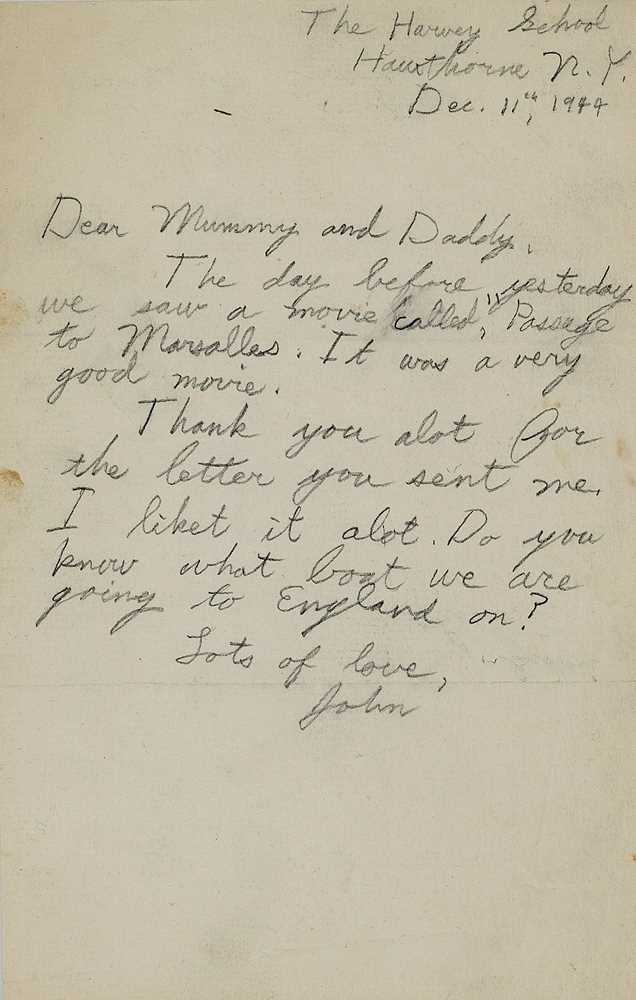 The Harvey School
Hawthorne N.Y.
Dec. 11th, 1944
Dear Mummy and Daddy,
The day before yesterday
we saw a movie called, "Passage
to Marsalles. It was a very
good movie.
Thank you alot for
the letter you sent me.
I liket it alot. Do you
know what boat we are
going to England on?
Lots of love,
John